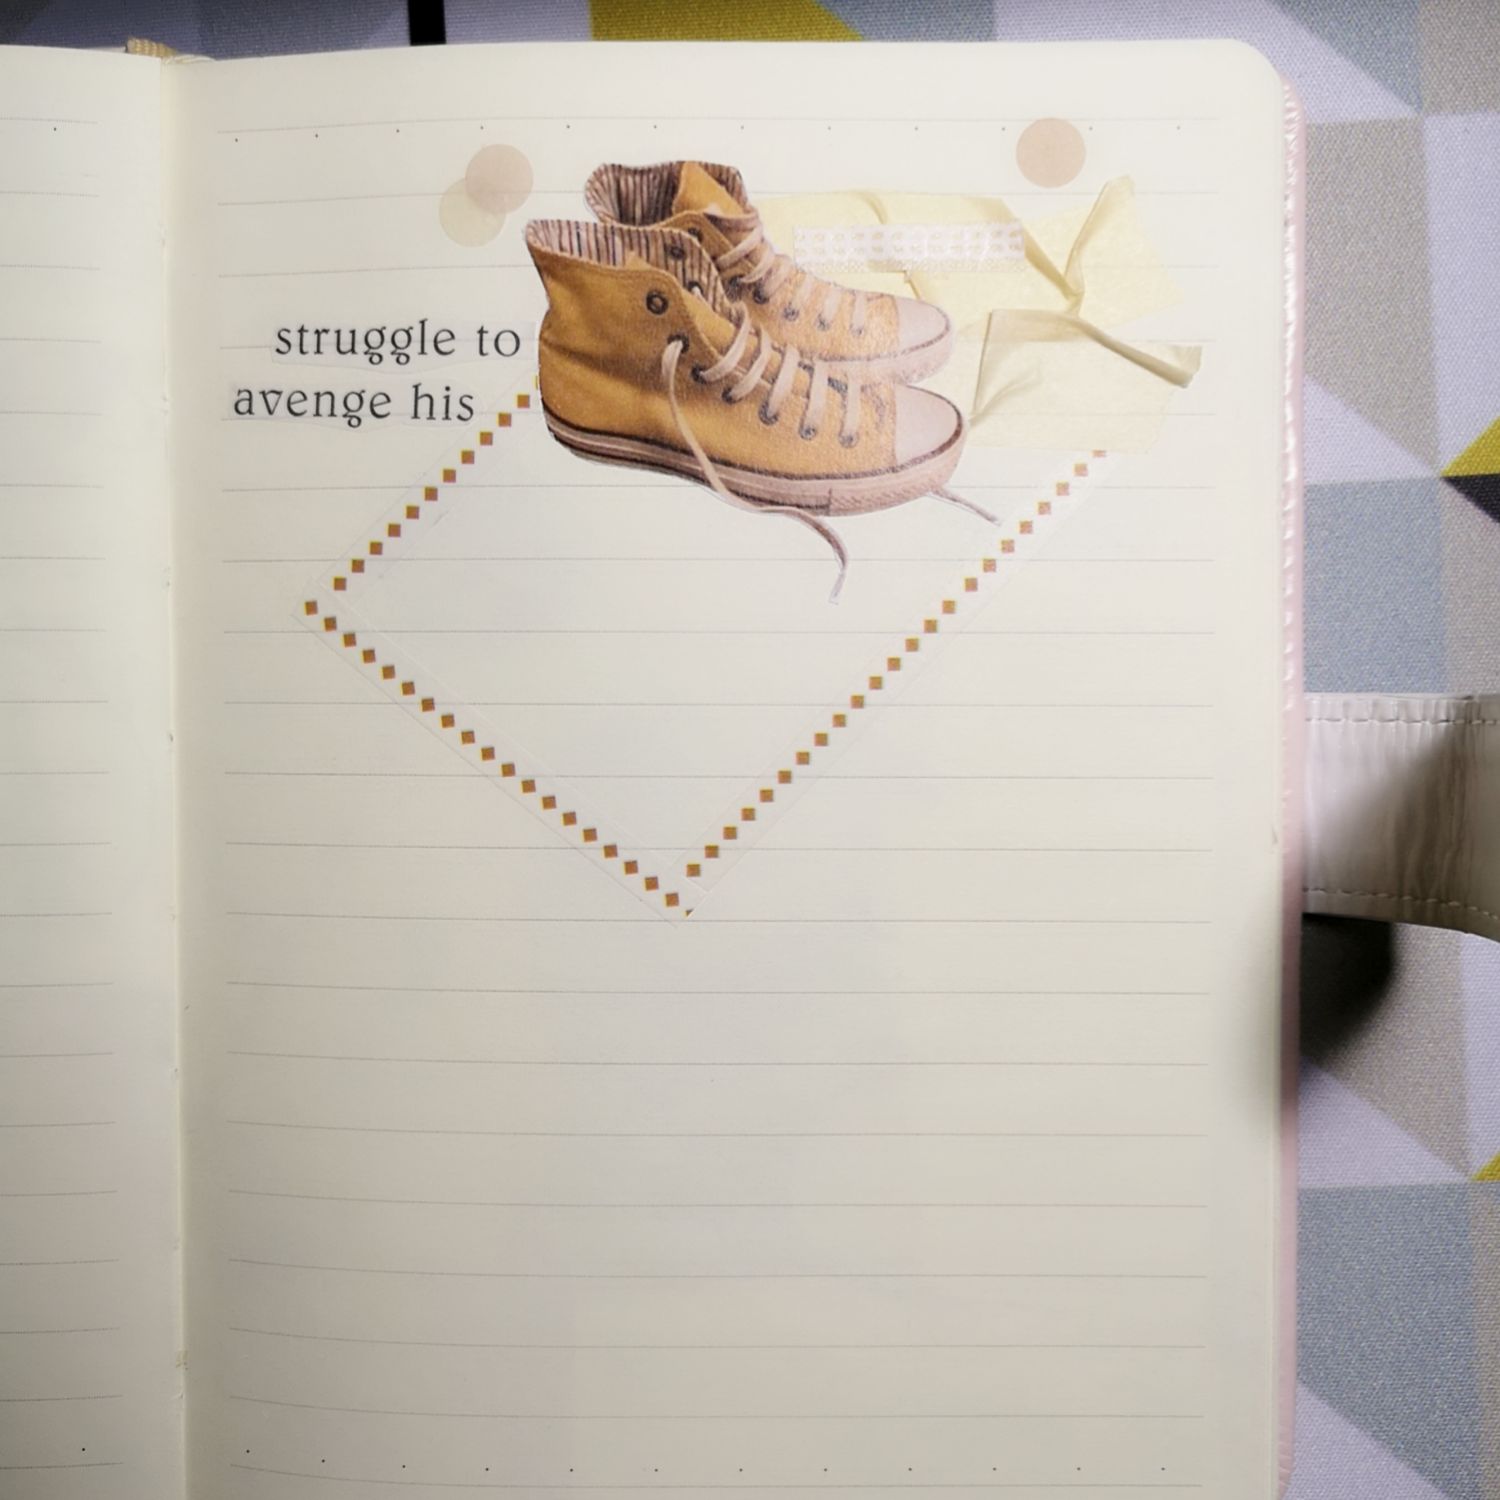 struggle to
avenge his